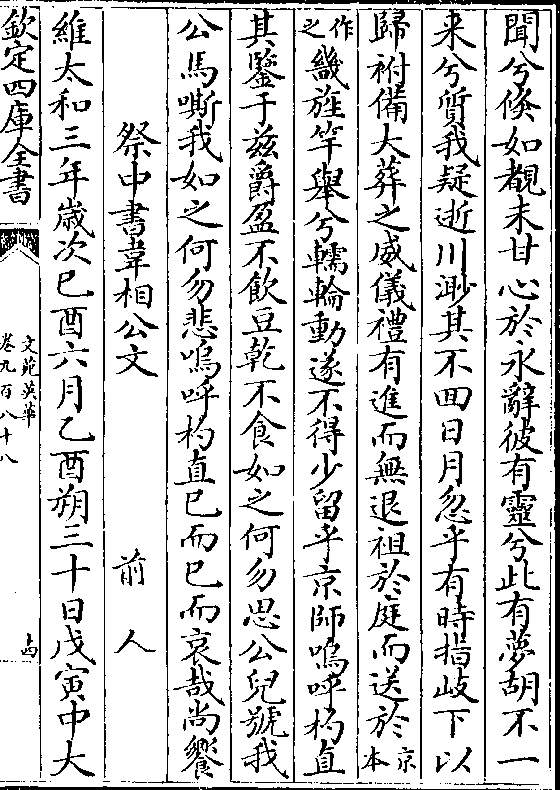 聞兮倏如覩未甘心於永辭彼有靈兮此有夢胡不一
来兮質我疑逝川渺其不回日月忽乎有時指岐下以
歸祔備大葬之威儀禮有進而無退祖於庭而送於京本
作之畿旌竿舉兮轜輪動遂不得少留乎京師嗚呼杓直
其鑒于兹爵盈不飲豆乾不食如之何勿思公兒號我
公馬嘶我如之何勿悲嗚呼杓直已而已而哀哉尚饗
祭中書韋相公文 前人
維太和三年歳次已酉六月乙酉朔三十日戊寅中大
欽定四庫全書
文苑英華
卷九百八十八